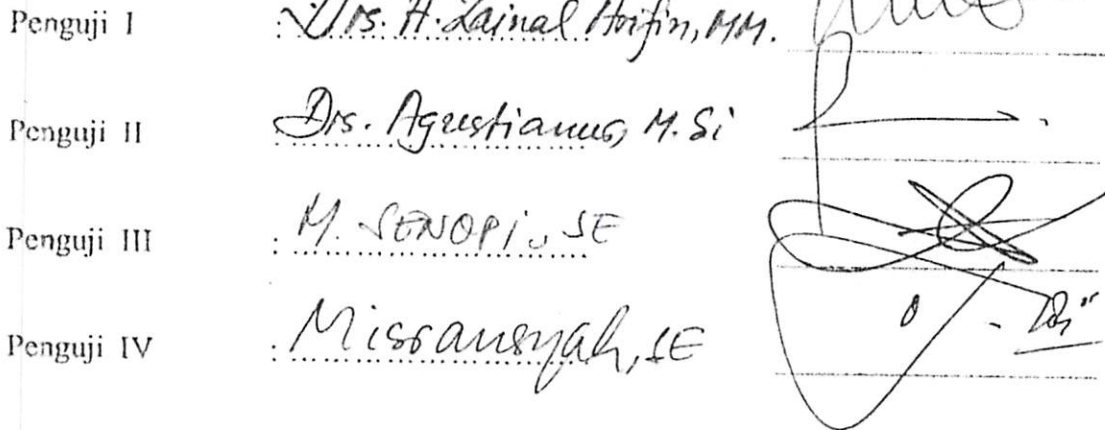 Penguji I : Drs. H. Zainal Arifin, MM.
Penguji II Drs. Agustianus, M. Si
Penguji III : M. SENOPI, SE
Penguji IV : Misransyah, SE